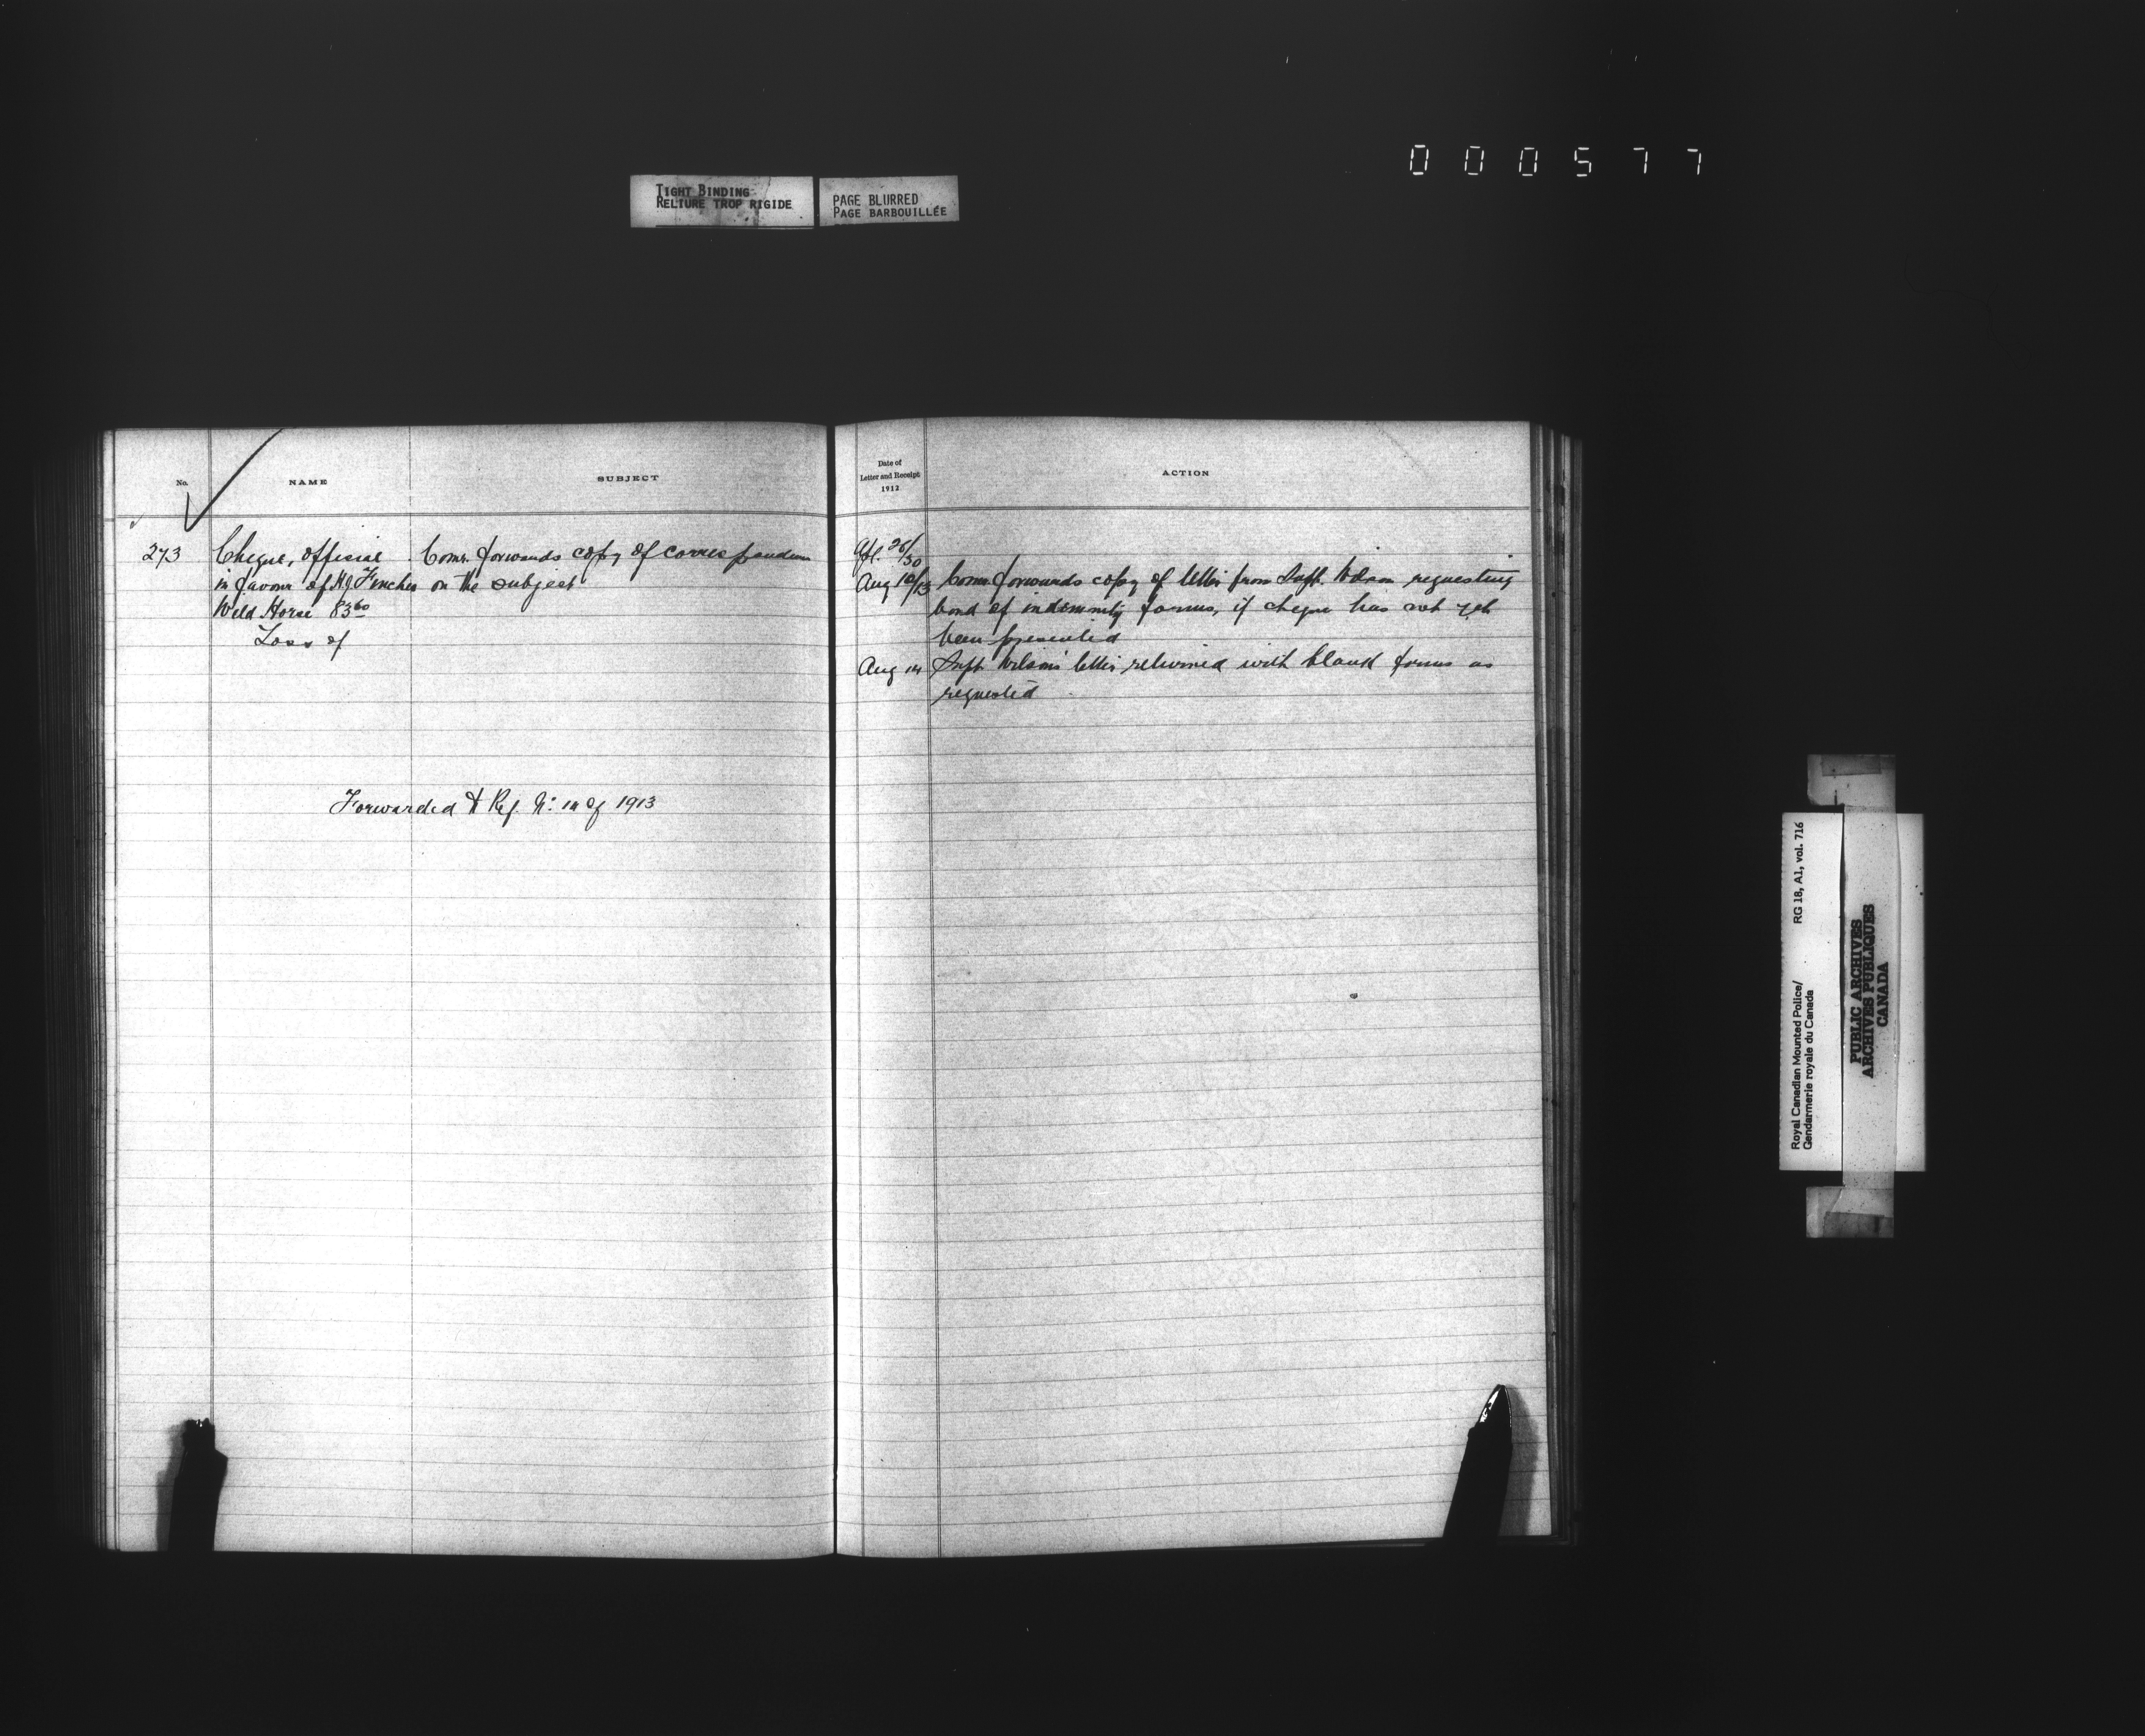 000577
TIGHT BINDING
RELIURE TROP RIGIDE
PAGE BLURRED
PAGE BARBOUILLÉE
No.
NAME
SUBJECT
Date of
Letter and Receipt
1912
ACTION
273
Cheque, official
in favour of H J Finches
Wild Horse 83 60
Loss of
Comr. forwards copy of correspondence
on the subject
Apl. 26/30
Aug 10/13 Comr. forwards copy of letter from Supt. Wilson requesting
bond of indemnity forms, if cheque has not yet
been presented
Aug 14 Supt Wilson's letter returned with blank forms as
requested
Forwarded to Ref. No: 14 of 1913
Royal Canadian Mounted Police/
Gendarmerie royale du Canada
RG 18, A1, vol. 716
PUBLIC ARCHIVES
ARCHIVES PUBLIQUES
CANADA